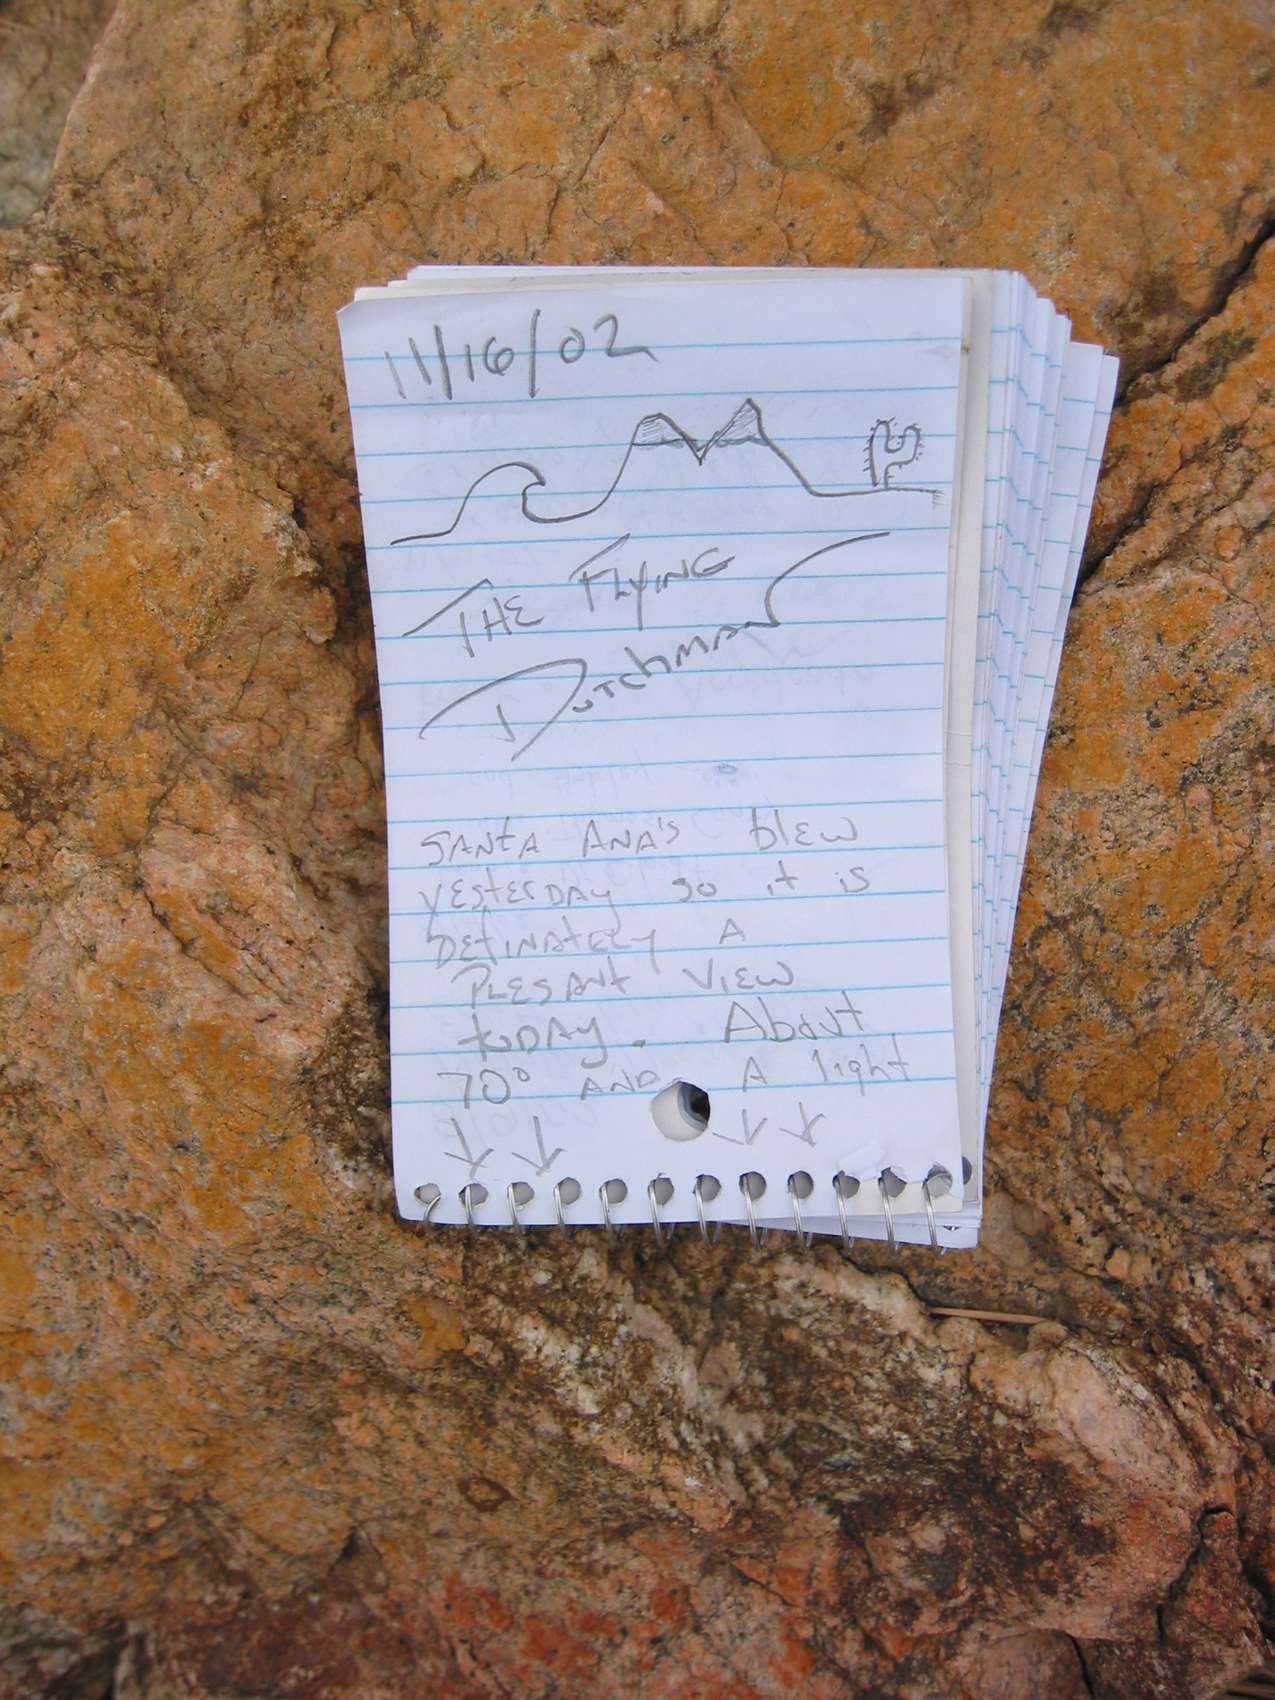 11/16/02
THE FLYING
DUTCHMAN
SANTA ANA'S blEW
YESTERDAY SO it is
DEFINATELY A
PLESANT VIEW
toDAY. About
70° AND A light